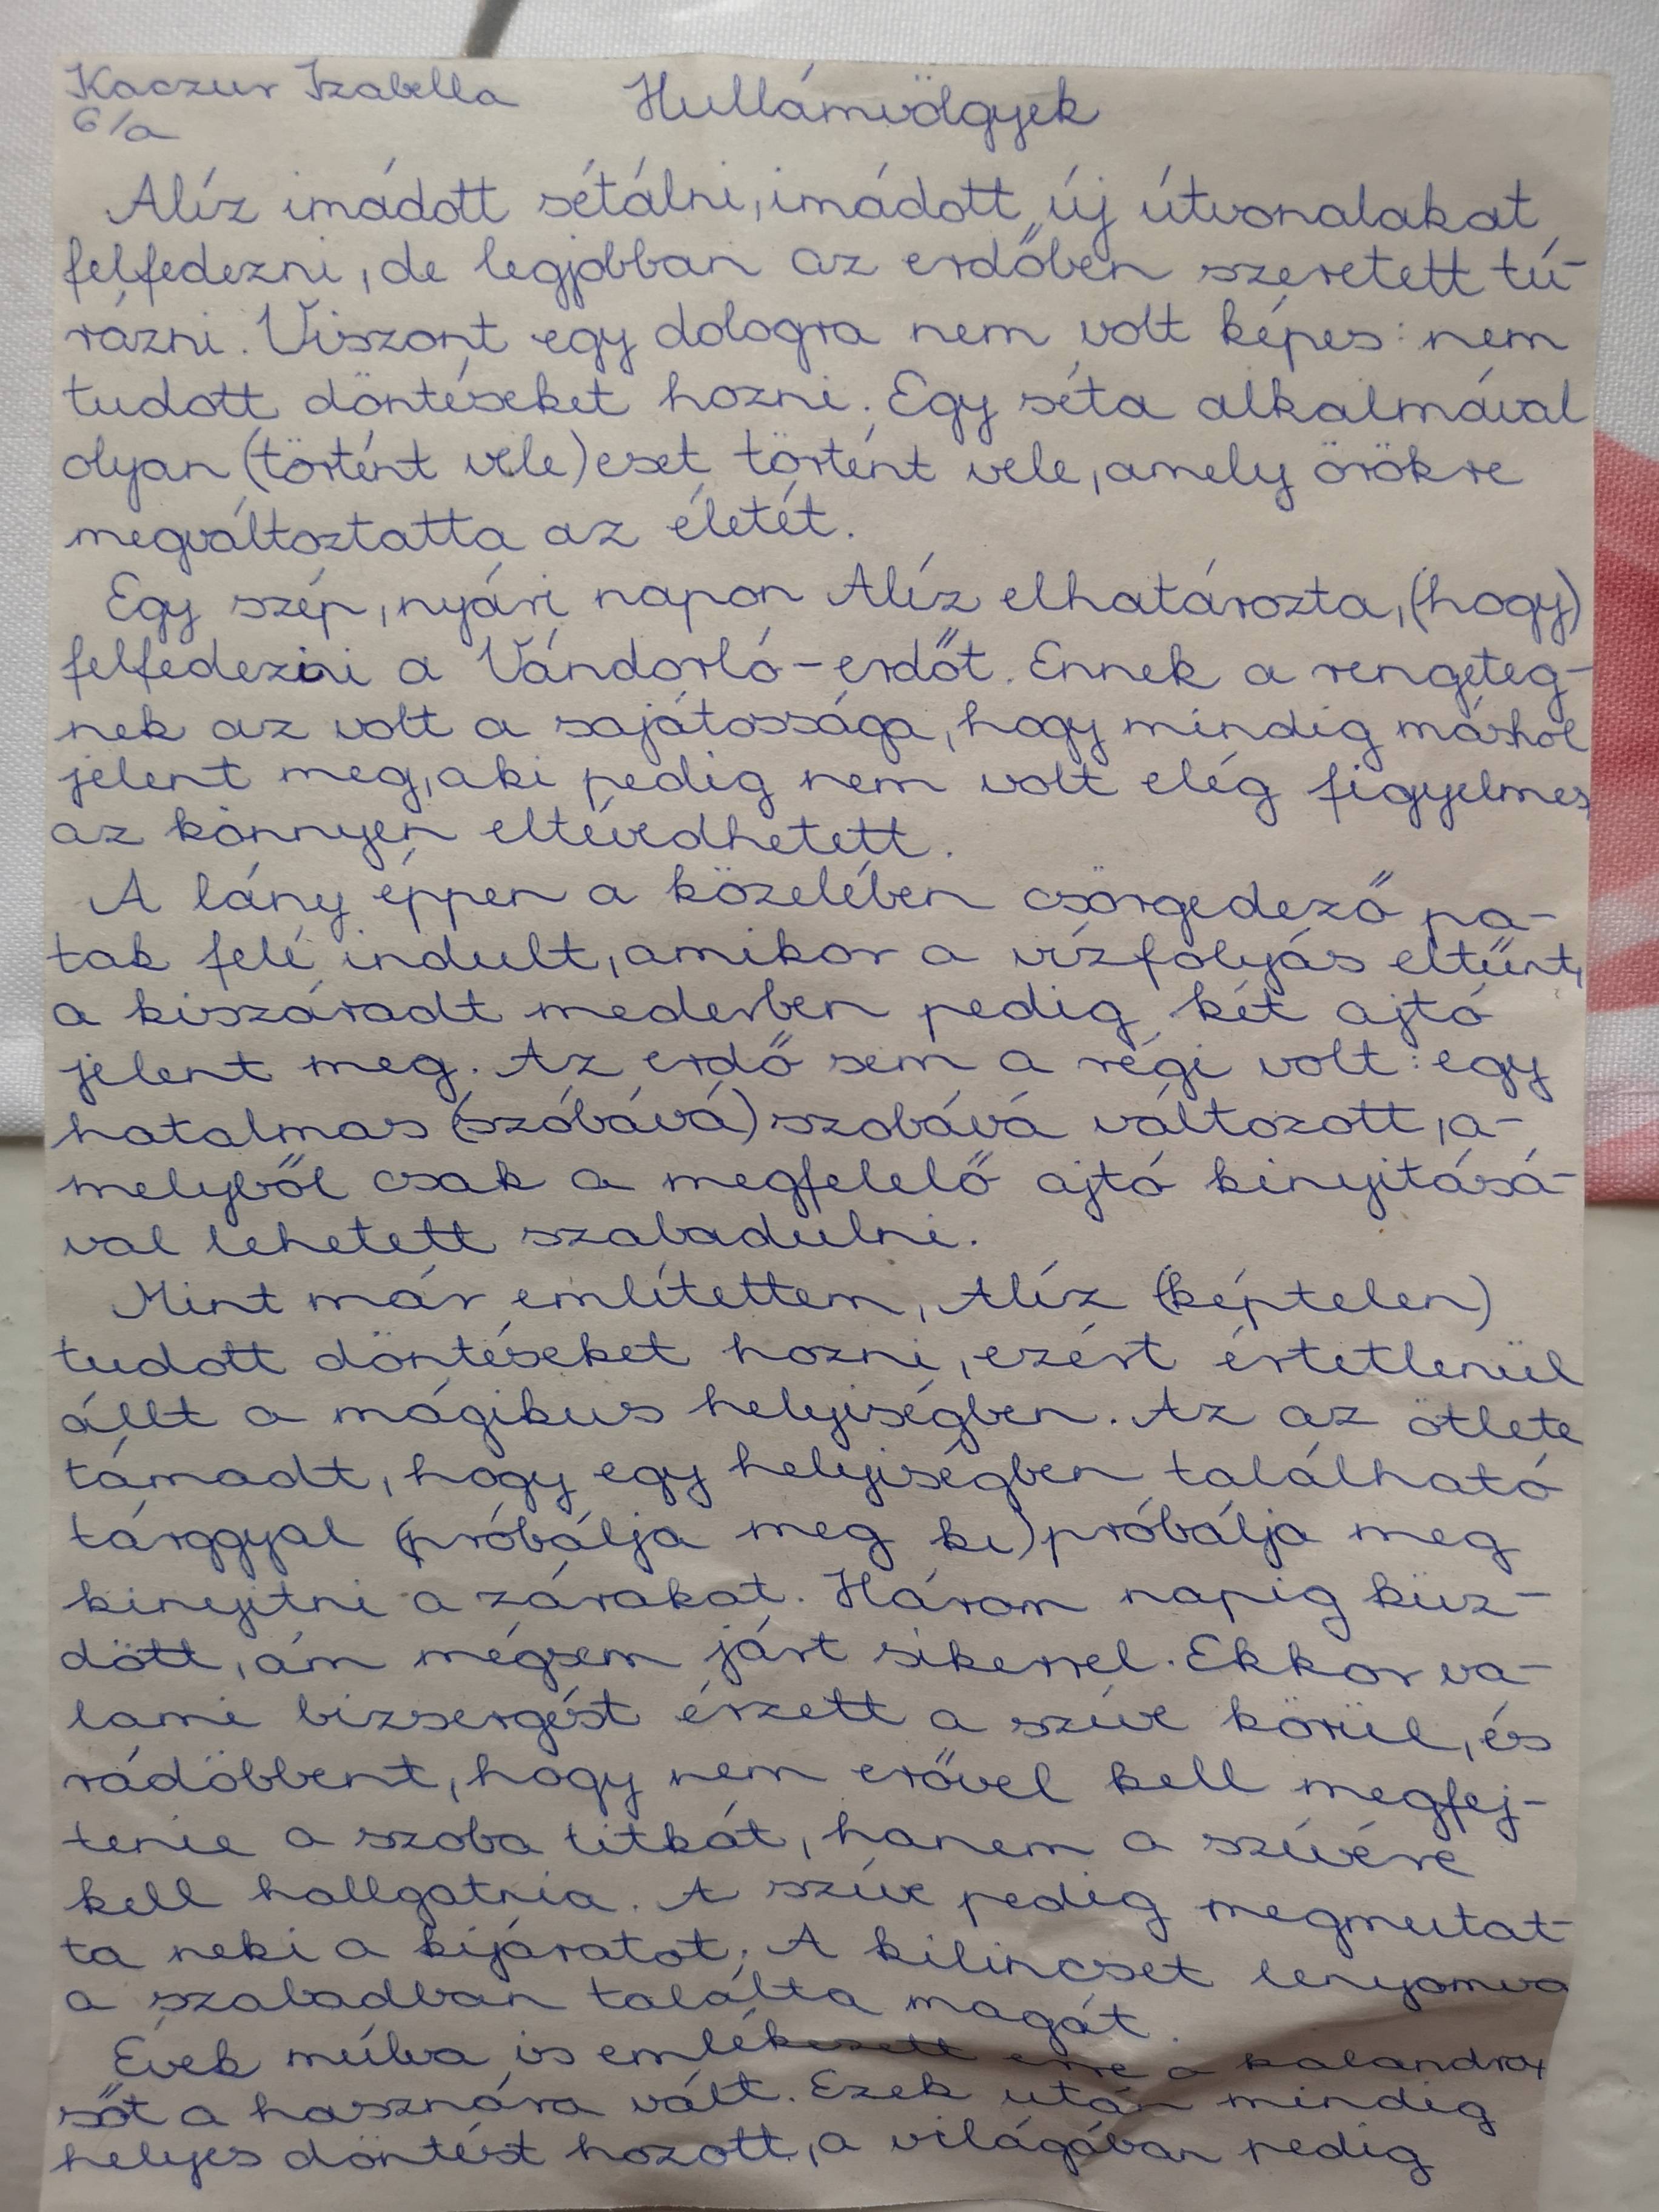 Kaczur Izabella Hullámvölgyek
6/a
Alíz imádott sétálni, imádott új útvonalakat
felfedezni, de legjobban az erdőben szeretett tú-
rázni. Viszont egy dologra nem volt képes: nem
tudott döntéseket hozni. Egy séta alkalmával
olyan (történt vele) eset történt vele, amely örökre
megváltoztatta az életét.
Egy szép, nyári napon Alíz elhatározta, (hogy)
felfedezni a Vándorló-erdőt. Ennek a rengeteg-
nek az volt a sajátossága, hogy mindig máshol
jelent meg, aki pedig nem volt elég figyelmes,
az könnyen eltévedhetett.
A lány éppen a közelében csörgedező pa-
tak felé indult, amikor a vízfolyás eltűnt,
a kiszáradt mederben pedig két ajtó
jelent meg. Az erdő sem a régi volt: egy
hatalmas (szóbává) szobává változott, a-
melyből csak a megfelelő ajtó kinyitásá-
val lehetett szabadulni.
Mint már említettem, Alíz (képtelen)
tudott döntéseket hozni, ezért értetlenül
állt a mágikus helyiségben. Az az ötlete
támadt, hogy egy helyiségben található
tárggyal (próbálja meg ki) próbálja meg
kinyitni a zárakat. Három napig küz-
dött, ám mégsem járt sikerrel. Ekkor va-
lami bizsergést érzett a szíve körül, és
rádöbbent, hogy nem erővel kell megfej-
tenie a szoba titkát, hanem a szívére
kell hallgatnia. A szíve pedig megmutat-
ta neki a kijáratot. A kilincset lenyomva
a szabadban találta magát.
Évek múlva is emlékezett erre a kalandra,
sőt a hasznára vált. Ezek után mindig
helyes döntést hozott, a világában pedig